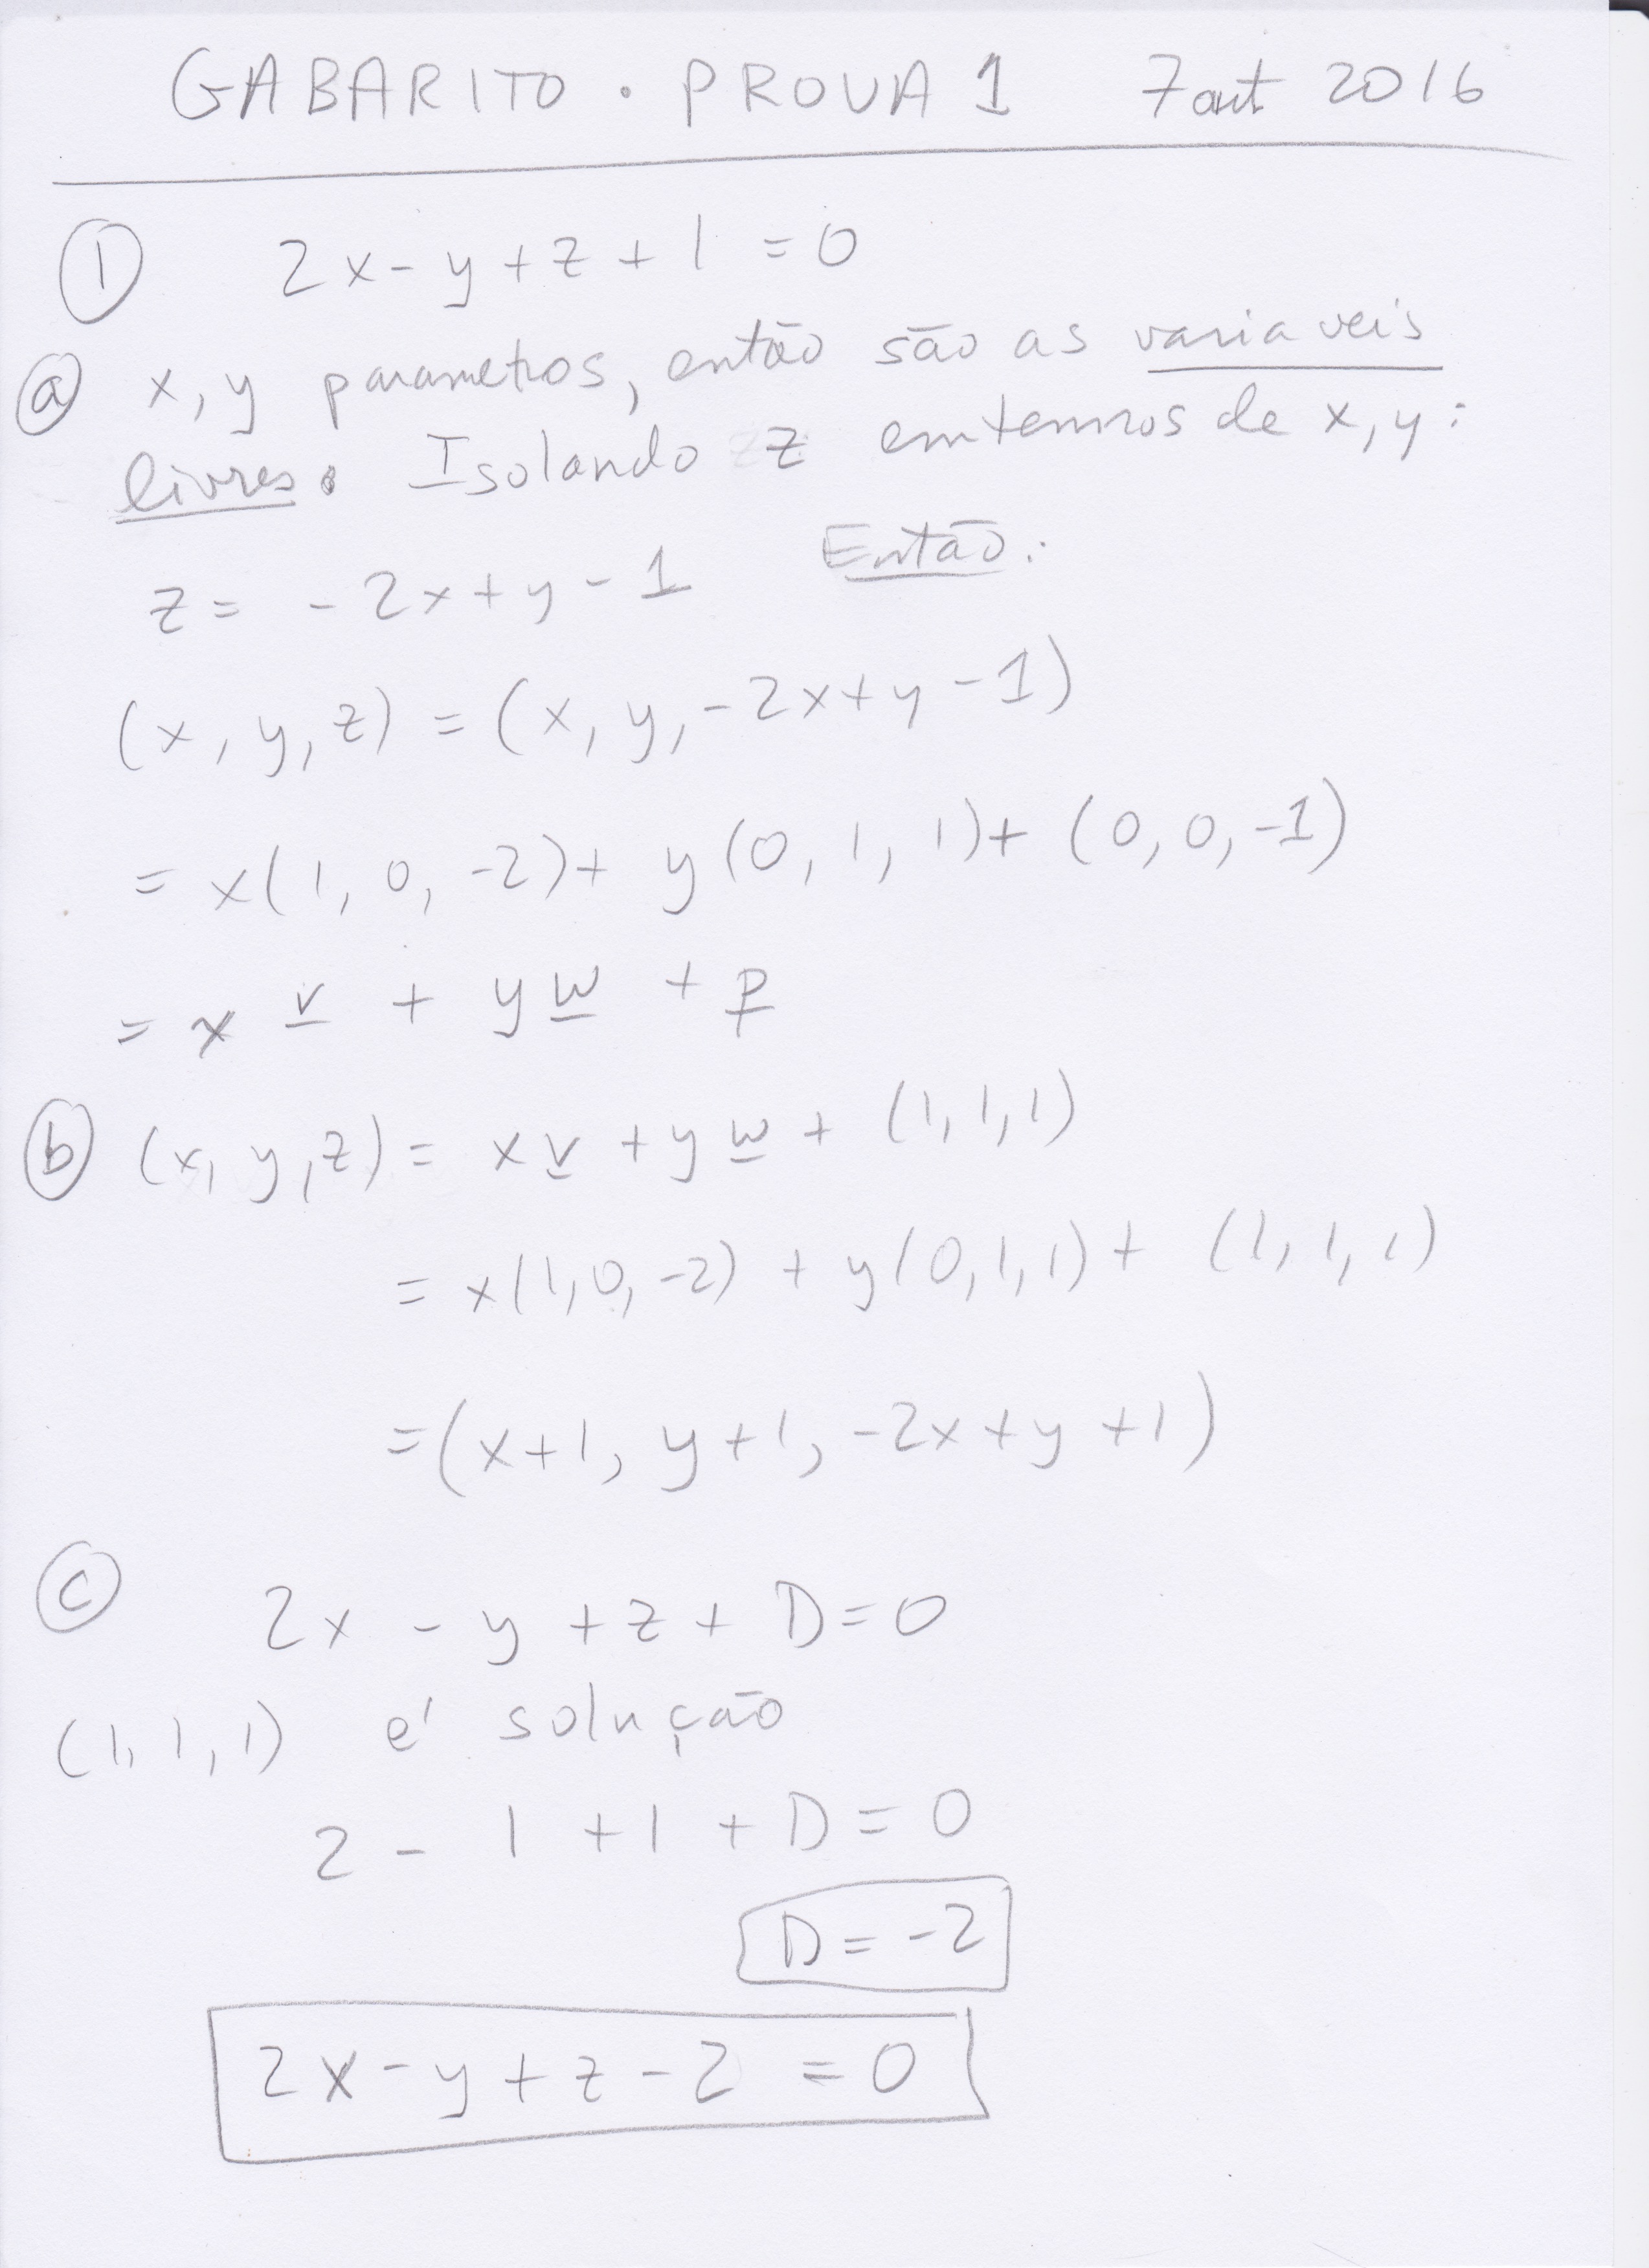 GABARITO . PROVA 1 7 out 2016
1 2x - y + z + 1 = 0
a x, y parametros, então são as variaveis
livres. Isolando z em termos de x, y:
z = - 2x + y - 1 Então:
(x, y, z) = (x, y, -2x + y - 1)
= x(1, 0, -2) + y(0, 1, 1) + (0, 0, -1)
= x v + y w + p
b (x, y, z) = x v + y w + (1, 1, 1)
= x(1, 0, -2) + y(0, 1, 1) + (1, 1, 1)
= (x+1, y+1, -2x + y + 1)
c 2x - y + z + D = 0
(1, 1, 1) é solução
2 - 1 + 1 + D = 0
D = -2
2x - y + z - 2 = 0